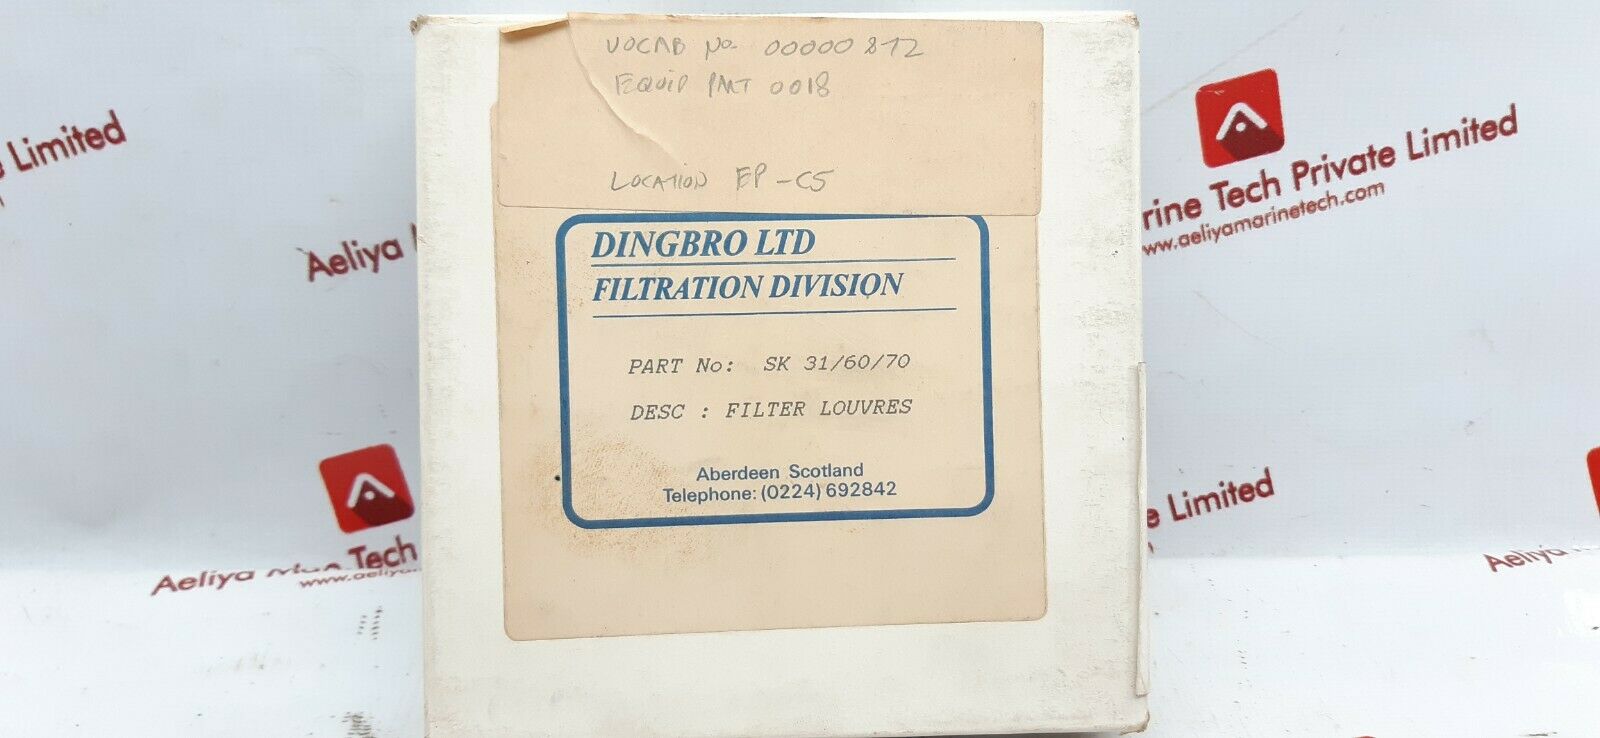 VOCAB No. 00000872
EQUIP PART 0018
LOCATION EP-C5
DINGBRO LTD
FILTRATION DIVISION
PART No: SK 31/60/70
DESC : FILTER LOUVRES
Aberdeen Scotland
Telephone: (0224) 692842
Limited
Aeliya
rine Tech Private Limited
www.aeliyamarinetech.com
Aeliya Tech
www.aeliya
e Limited
Aeliya